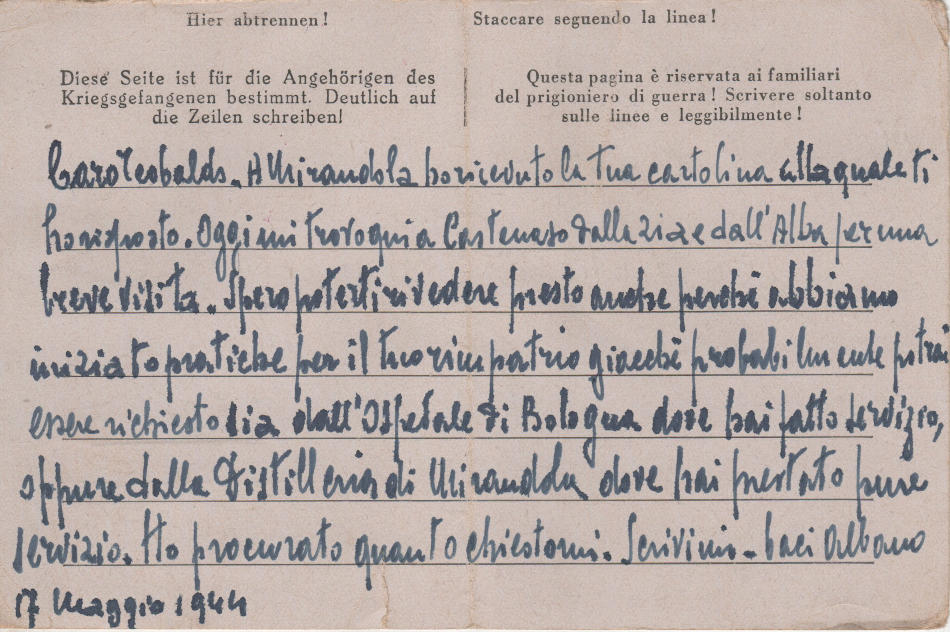 Hier abtrennen!
Staccare seguendo la linea!
Diese Seite ist für die Angehörigen des
Kriegsgefangenen bestimmt. Deutlich auf
die Zeilen schreiben!
Questa pagina è riservata ai familiari
del prigioniero di guerra! Scrivere soltanto
sulle linee e leggibilmente!
Caro Teobaldo. A Mirandola ho ricevuto la tua cartolina alla quale ti
ho risposto. Oggi mi trovo qui a Castenaso dalla zia e dall'Alba per una
breve visita. Spero poterti rivedere presto anche perchè abbiamo
iniziato pratiche per il tuo rimpatrio giacchè probabilmente potrai
essere richiesto sia dall'Ospedale di Bologna dove hai fatto servizio,
oppure dalla Distilleria di Mirandola dove hai prestato pure
servizio. Ho procurato quanto chiestomi. Scrivimi - baci Albano
17 Maggio 1944